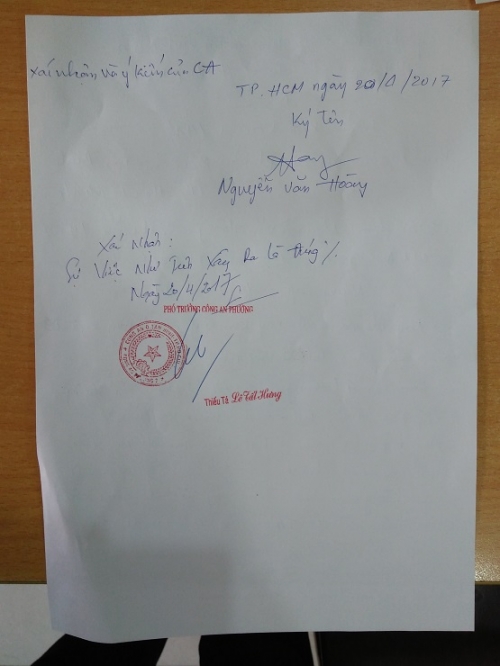 Xác nhận và ý kiến của CA
TP. HCM ngày 20/4/2017
Ký tên
Nguyễn Văn Hoàng
Xác Nhận:
Sự Việc Như Trên Xảy Ra Là đúng ./.
Ngày 20/4/2017
PHÓ TRƯỞNG CÔNG AN PHƯỜNG
Thiếu Tá Lê Tất Hưng